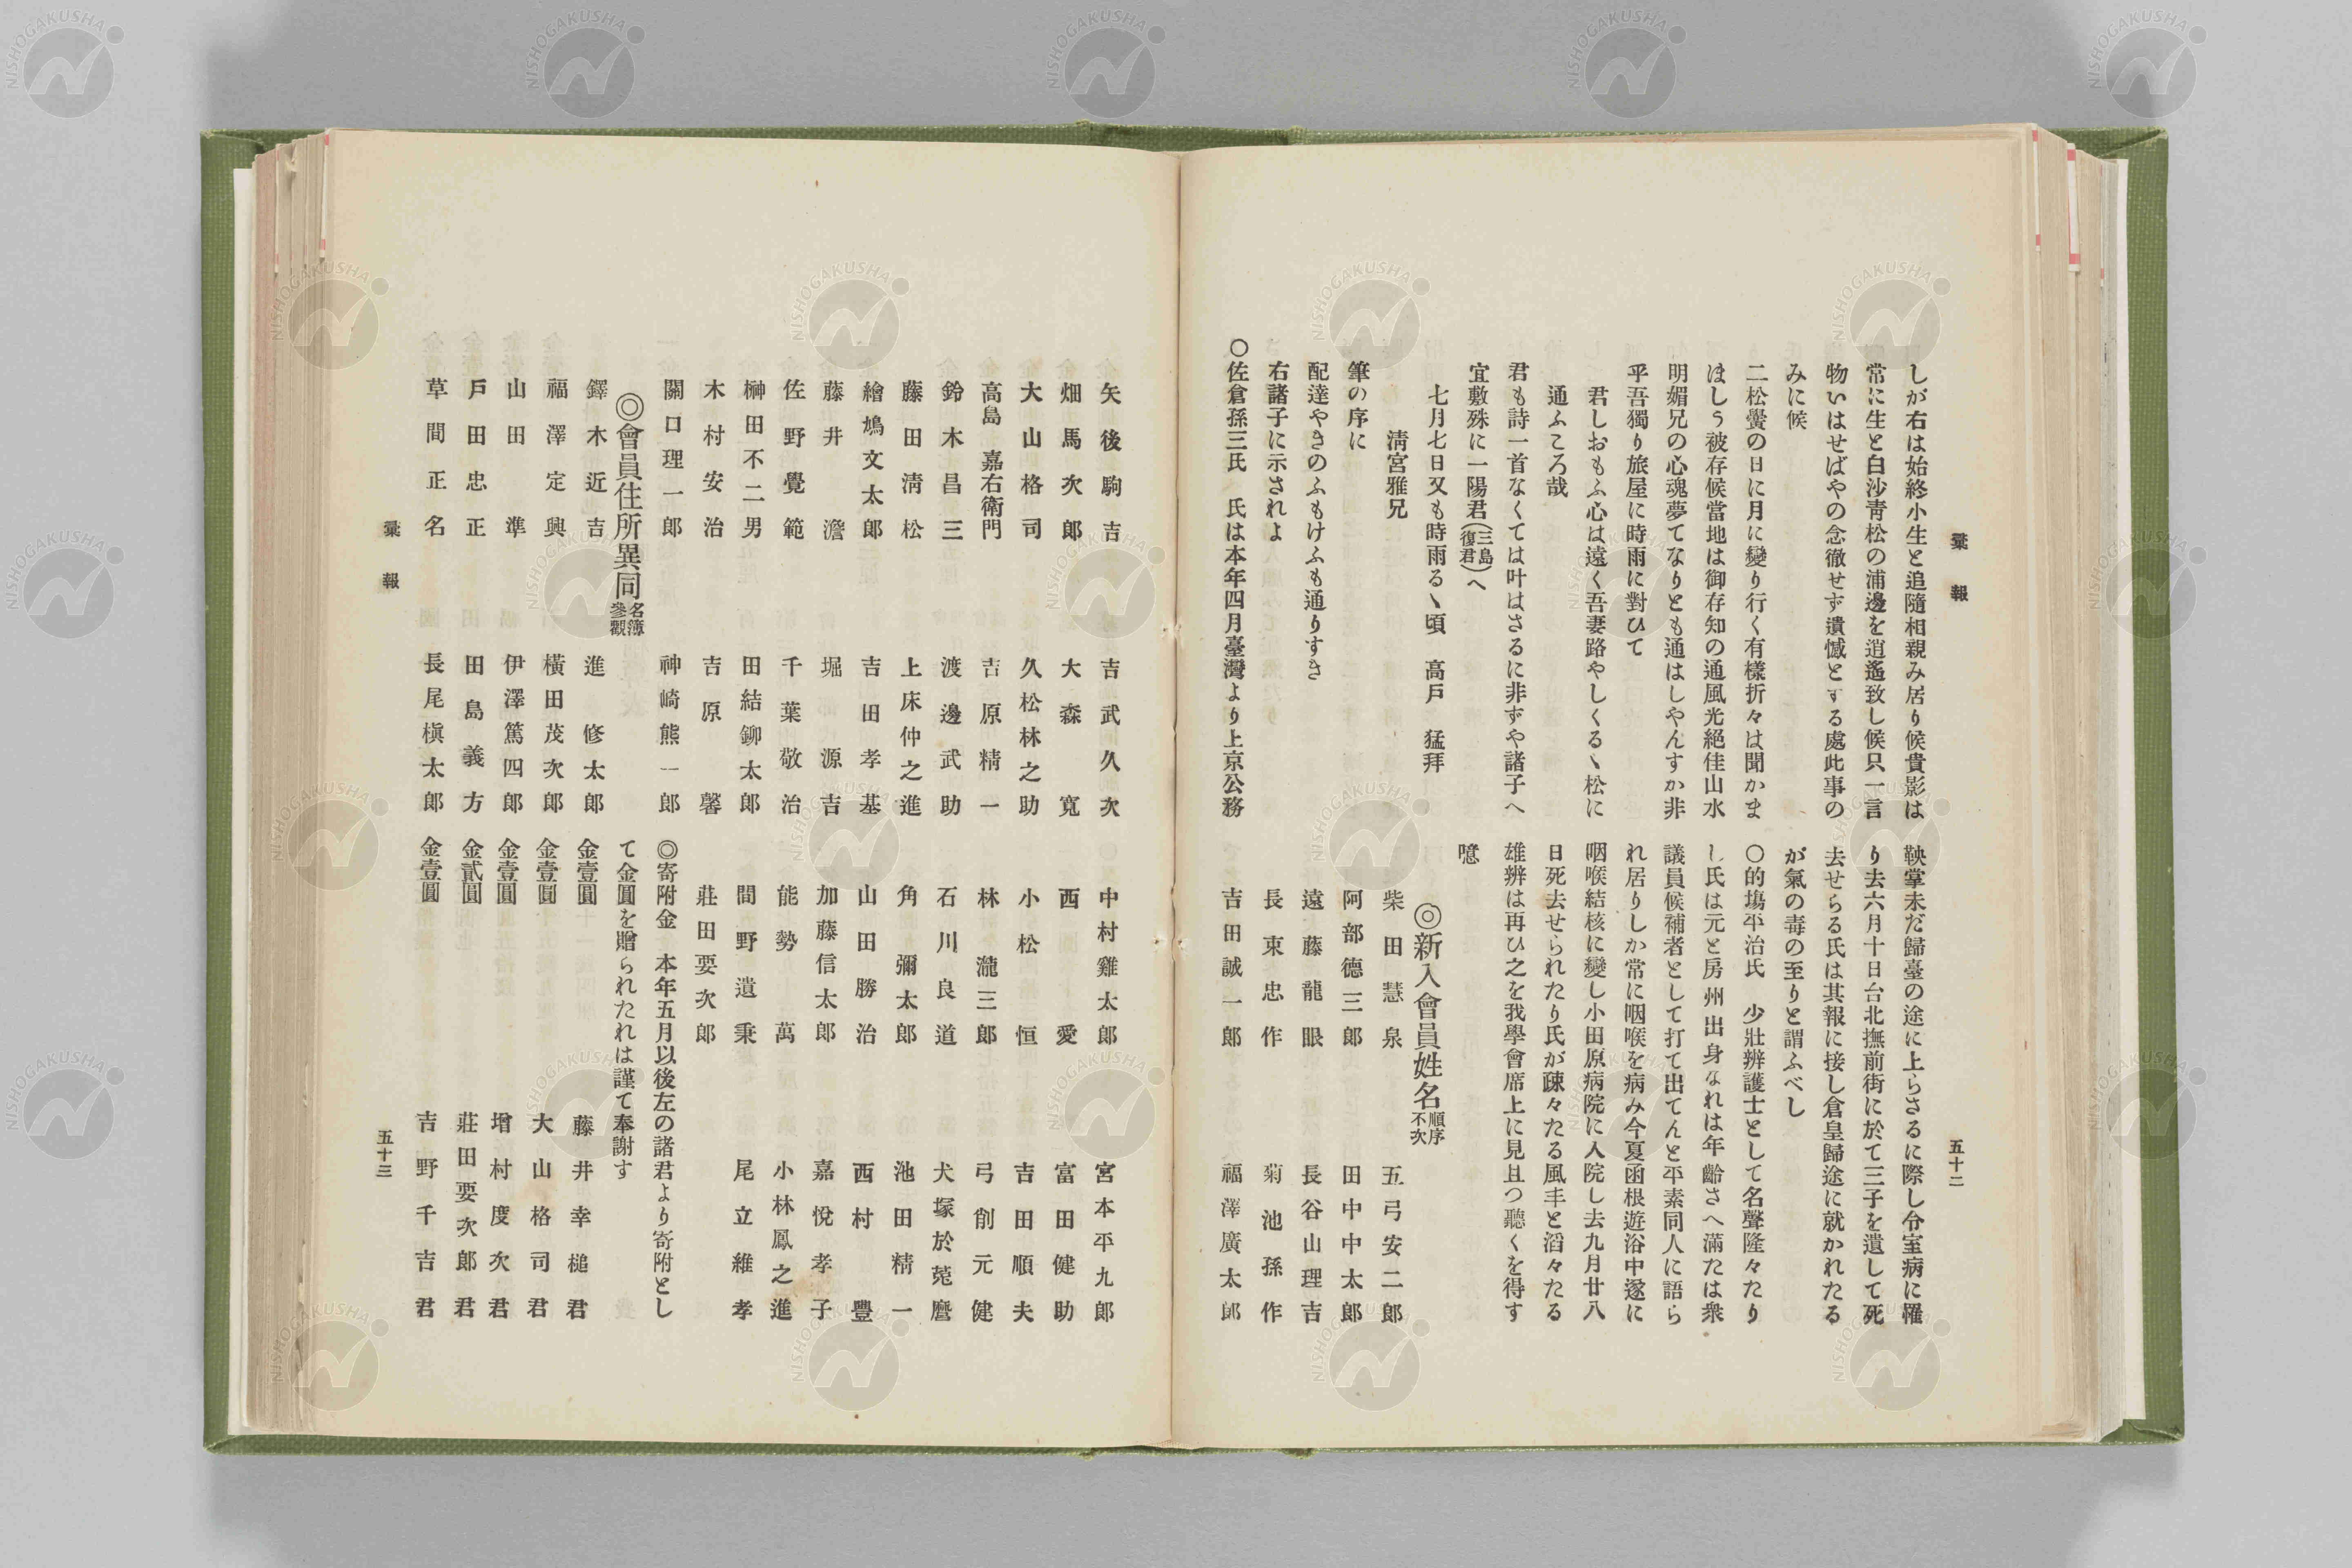 彙報
五十二
しが右は始終小生と追隨相親み居り候貴影は
常に生と白沙青松の浦邊を逍遙致し候只一言
物いはせばやの念徹せず遺憾とする處此事の
みに候
二松黌の日に月に變り行く有樣折々は聞かま
ほしう被存候當地は御存知の通風光絕佳山水
明媚兄の心魂夢てなりとも通はしやんすか非
乎吾獨り旅屋に時雨に對ひて
君しおもふ心は遠く吾妻路やしくるゝ松に
通ふころ哉
君も詩一首なくては叶はさるに非ずや諸子へ
宜敷殊に一陽君(三島復君)へ
七月七日又も時雨るゝ頃 高戶 猛拜
淸宮雅兄
筆の序に
配達やきのふもけふも通りすき
右諸子に示されよ
○佐倉孫三氏 氏は本年四月臺灣より上京公務
鞅掌未だ歸臺の途に上らさるに際し令室病に罹
り去六月十日台北撫前街に於て三子を遺して死
去せらる氏は其報に接し倉皇歸途に就かれたる
が氣の毒の至りと謂ふべし
○的塲平治氏 少壯辨護士として名聲隆々たり
し氏は元と房州出身なれは年齡さへ滿たは衆
議員候補者として打て出てんと平素同人に語ら
れ居りしか常に咽喉を病み今夏函根遊浴中遂に
咽喉結核に變し小田原病院に入院し去九月廿八
日死去せられたり氏が疎々たる風丰と滔々たる
雄辨は再ひ之を我學會席上に見且つ聽くを得す
噫
◎新入會員姓名順序不次
柴田慧泉 五弓安二郎
阿部德三郎 田中中太郎
遠藤龍眼 長谷山理吉
長束忠作 菊池孫作
吉田誠一郎 福澤廣太郎
矢後駒吉 吉武久次 中村雞太郎 宮本平九郎
畑馬次郎 大森寬 西愛 富田健助
大山格司 久松林之助 小松恒 吉田順夫
高島嘉右衛門 吉原精一 林瀧三郎 弓削元健
鈴木昌三 渡邊武助 石川良道 犬塚於菟麿
藤田淸松 上床仲之進 角彌太郎 池田精一
繪鳩文太郎 吉田孝基 山田勝治 西村豐
藤井澹 堀源吉 加藤信太郎 嘉悅孝子
佐野覺範 千葉敬治 能勢萬 小林鳳之進
榊田不二男 田結鉚太郎 間野遺秉 尾立維孝
木村安治 吉原馨 莊田要次郎
關口理一郎 神崎熊一郎
◎會員住所異同名簿參觀
鐸木近吉 進修太郎
福澤定興 橫田茂次郎
山田準 伊澤篤四郎
戶田忠正 田島義方
草間正名 長尾槇太郎
◎寄附金 本年五月以後左の諸君より寄附とし
て金圓を贈られたれは謹て奉謝す
金壹圓 藤井幸槌君
金壹圓 大山格司君
金壹圓 增村度次君
金貳圓 莊田要次郎君
金壹圓 吉野千吉君
彙報
五十三
NISHOGAKUSHA